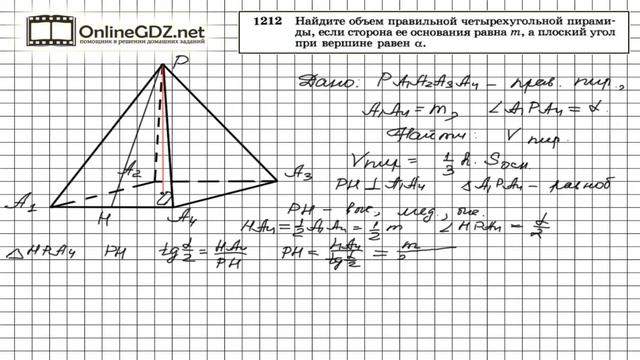 OnlineGDZ.net
помощник в решении домашних заданий
1212 Найдите объем правильной четырехугольной пирами-
ды, если сторона ее основания равна m, а плоский угол
при вершине равен α.
Дано: PA₁A₂A₃A₄ – прав. пир,
A₁A₄ = m, ∠A₁PA₄ = α.
Найти: V пир.
Vпир = 1/3 h. Sосн.
PH ⊥ A₁A₄ △A₁PA₄ – равноб
PH – выс, мед, бис.
HA₄ = 1/2 A₁A₄ = 1/2 m ∠HPA₄ = α/2
△HPA₄ PH tg α/2 = HA₄/PH PH = HA₄/tg α/2 = m/2
P
A₂
A₃
A₁
H
O
A₄